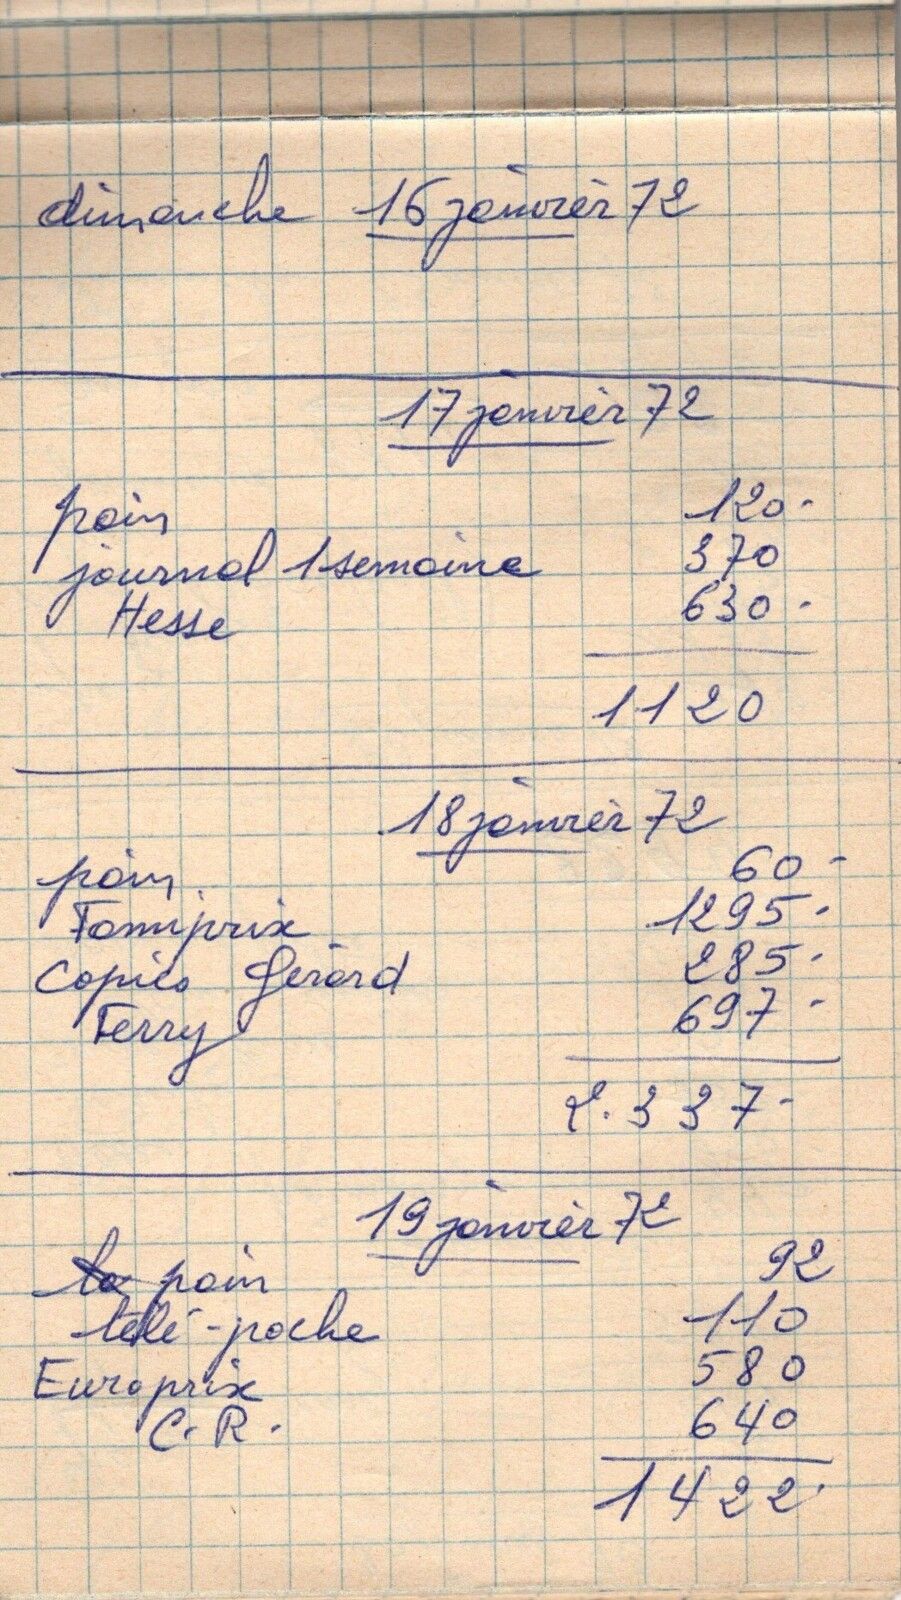 dimanche 16 janvier 72
17 janvier 72
pain 120-
journal 1 semaine 370
Hesse 630-
1120
18 janvier 72
pain 60-
Famiprix 1295-
Copies Gérard 285-
Ferry 697-
2.337-
19 janvier 72
pain 92
télé-poche 110
Europrix 580
C.R. 640
1422.